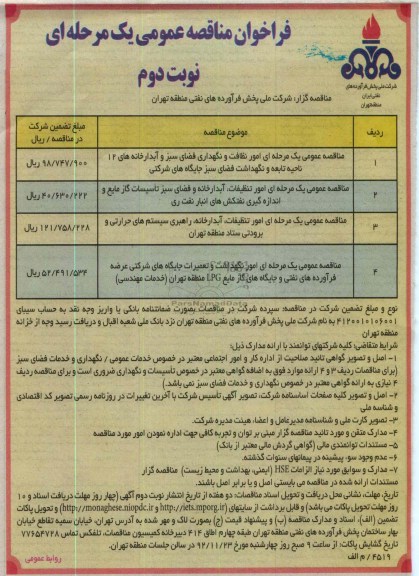 فراخوان مناقصه عمومی یک مرحله ای
نوبت دوم
شرکت ملی پخش فرآورده های
نفتی ایران
منطقه تهران
مناقصه گزار: شرکت ملی پخش فرآورده های نفتی منطقه تهران
ردیف
موضوع مناقصه
مبلغ تضمین شرکت
در مناقصه / ریال
۱
مناقصه عمومی یک مرحله ای امور نظافت و نگهداری فضای سبز و آبدارخانه های ۱۲
ناحیه تابعه و نگهداشت فضای سبز جایگاه های شرکتی
۹۸/۷۴۷/۹۰۰ ریال
۲
مناقصه عمومی یک مرحله ای امور تنظیفات، آبدارخانه و فضای سبز تاسیسات گاز مایع و
اندازه گیری نفتکش های انبار نفت ری
۴۰/۶۳۰/۲۲۲ ریال
۳
مناقصه عمومی یک مرحله ای امور تنظیفات، آبدارخانه، راهبری سیستم های حرارتی و
برودتی ستاد منطقه تهران
۱۲۱/۷۵۸/۲۲۸ ریال
۴
مناقصه عمومی یک مرحله ای امور نگهداشت و تعمیرات جایگاه های شرکتی عرضه
فرآورده های نفتی و جایگاه های گاز مایع LPG منطقه تهران (خدمات مهندسی)
۵۲/۴۹۱/۵۳۴ ریال
ParsNamadData
نوع و مبلغ تضمین شرکت در مناقصه: سپرده شرکت در مناقصات بصورت ضمانتنامه بانکی یا واریز وجه نقد به حساب سیبای
۴۱۲۰۰۱۰۱۰۶۰۰۱ به نام شرکت ملی پخش فرآورده های نفتی منطقه تهران نزد بانک ملی شعبه اقبال و دریافت رسید وجه از خزانه
منطقه تهران
شرایط متقاضی: کلیه شرکتهای توانمند با ارائه مدارک ذیل:
۱- اصل و تصویر گواهی تائید صلاحیت از اداره کار و امور اجتماعی معتبر در خصوص خدمات عمومی / نگهداری و خدمات فضای سبز
(برای مناقصات ردیف ۳ و ۴ ارائه موارد فوق به اضافه گواهی معتبر در خصوص تأسیسات و نگهداری ضروری است و برای مناقصه ردیف
۴ نیازی به ارائه گواهی معتبر در خصوص نگهداری و خدمات فضای سبز نمی باشد.)
۲- اصل و تصویر کلیه صفحات اساسنامه شرکت، تصویر آگهی تأسیس شرکت با آخرین تغییرات در روزنامه رسمی تصویر کد اقتصادی
و شناسه ملی
۳- تصویر کارت ملی و شناسنامه مدیرعامل و اعضاء هیئت مدیره شرکت.
۴- مدارک متقن و مورد تائید مناقصه گزار مبنی بر توان و تجربه کافی جهت اداره نمودن امور مورد مناقصه
۵- مستندات توانمندی مالی (گواهی گردش مالی معتبر از بانک)
۶- عدم وجود سوء پیشینه در پیمانهای سنوات گذشته.
۷- مدارک و سوابق مورد نیاز الزامات HSE (ایمنی، بهداشت و محیط زیست) مناقصه گزار
مستندات ارائه شده در مناقصه می بایستی اصل و یا برابر اصل باشند.
تاریخ، مهلت، نشانی محل دریافت و تحویل اسناد مناقصات: دو هفته از تاریخ انتشار نوبت دوم آگهی (چهار روز مهلت دریافت اسناد و ۱۰
روز مهلت تحویل پاکات می باشد) و قابل برداشت از سایتهای (http://iets.mporg.ir و http://monaghese.niopdc.ir) و تحویل پاکات
تضمین (الف)، اسناد و مدارک مناقصه (ب) و پیشنهاد قیمت (ج) بصورت لاک و مهر شده به آدرس تهران، خیابان سمیه تقاطع خیابان
بهار ساختمان پخش فرآورده های نفتی منطقه تهران طبقه چهارم اطاق ۴۱۴ دبیرخانه کمیسیون مناقصات، تلفکس تماس ۷۷۶۵۴۷۲۸
تاریخ گشایش پاکات: از ساعت ۹ صبح روز چهارشنبه مورخ ۹۲/۱۱/۲۳ در سالن جلسات منطقه تهران.
۴۵۱۹ / م الف
روابط عمومی